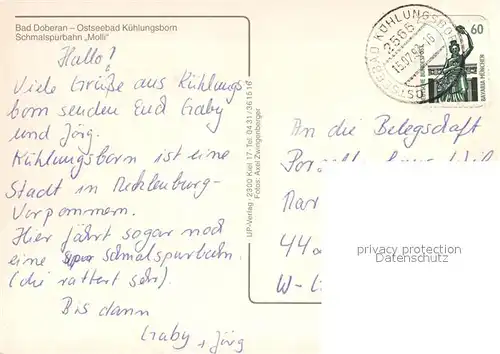 Bad Doberan – Ostseebad Kühlungsborn
Schmalspurbahn „Molli"
Hallo!
Viele Grüße aus Kühlungs
born senden Euch Gaby
und Jörg.
Kühlungsborn ist eine
Stadt in Mecklenburg-
Vorpommern.
Hier fährt sogar noch
eine Schmalspurbahn.
(die rattert sehr).
Bis dann
Gaby + Jörg
UP-Verlag · 2300 Kiel 17 · Tel. 0431/361516
Fotos: Axel Zwingenberger
OSTSEEBAD KÜHLUNGSBORN
2565
15.07.92-16
60
DEUTSCHE BUNDESPOST
BAVARIA MÜNCHEN
An die Belegschaft
44
W-
privacy protection
Datenschutz